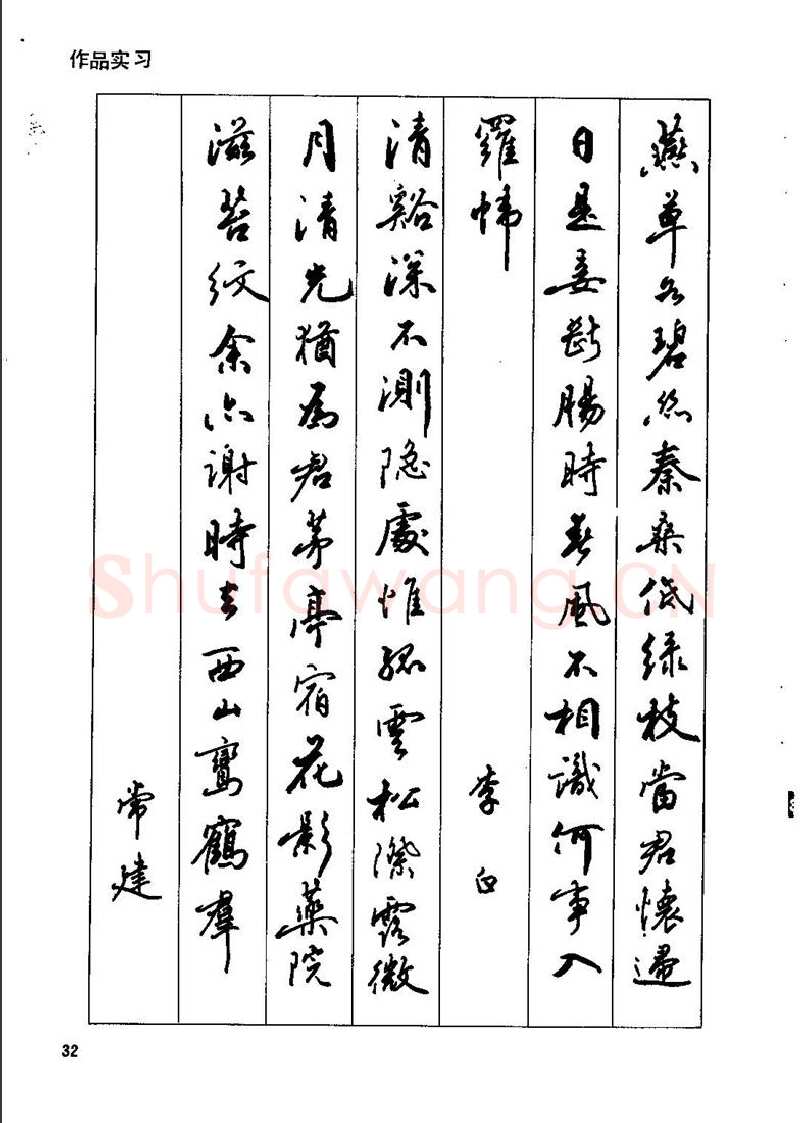 作品实习
燕草如碧丝秦桑低绿枝當君懷遍
日是妾断腸時春風不相識何事入
羅幃
李白
清谿深不測隐處惟孤雲松際露微
月清光猶為君茅亭宿花影藥院
滋苔纹余亦谢時去西山鸞鶴羣
常建
Shufawang.CN
32